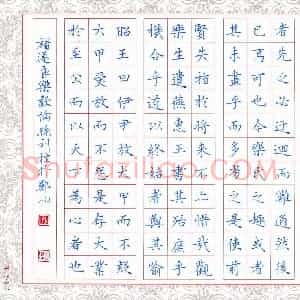 者先之必迂迴而難通然後
已焉可也今樂氏之趣或者
其未盡乎而多劣之是使前
賢失指於將來不亦惜哉觀
樂生遺燕惠王書其殆庶乎
機合乎道以終始者與其喻
昭王曰伊尹放大甲而不疑
大甲受放而不怨是存大業
於至公而以天下為心者也
樂毅
Shufaziliao.com